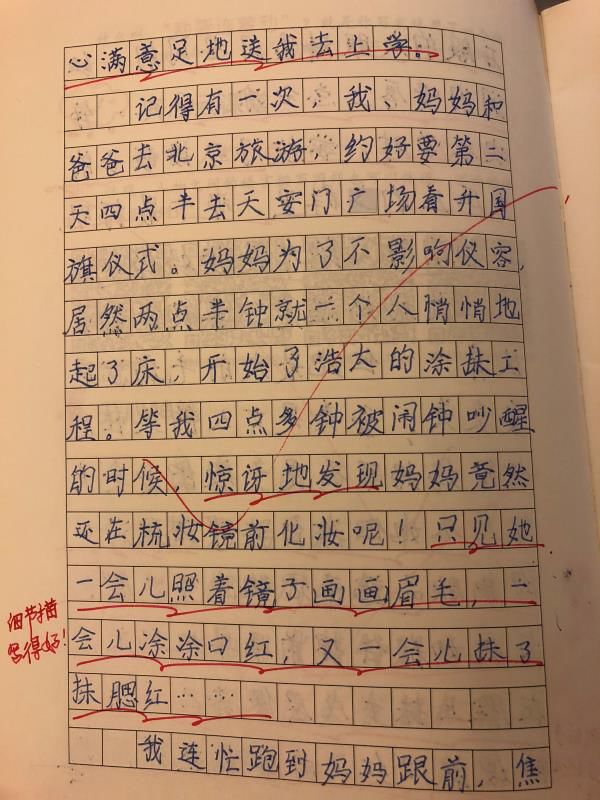 心满意足地送我去上学。
记得有一次，我、妈妈和
爸爸去北京旅游，约好要第二
天四点半去天安门广场看升国
旗仪式。妈妈为了不影响仪容，
居然两点半钟就一个人悄悄地
起了床，开始了浩大的涂抹工
程。等我四点多钟被闹钟吵醒
的时候，惊讶地发现妈妈竟然
还在梳妆镜前化妆呢！只见她
一会儿照着镜子画画眉毛，一
会儿涂涂口红，又一会儿抹了
抹腮红……
我连忙跑到妈妈跟前，焦
细节描
写得好！